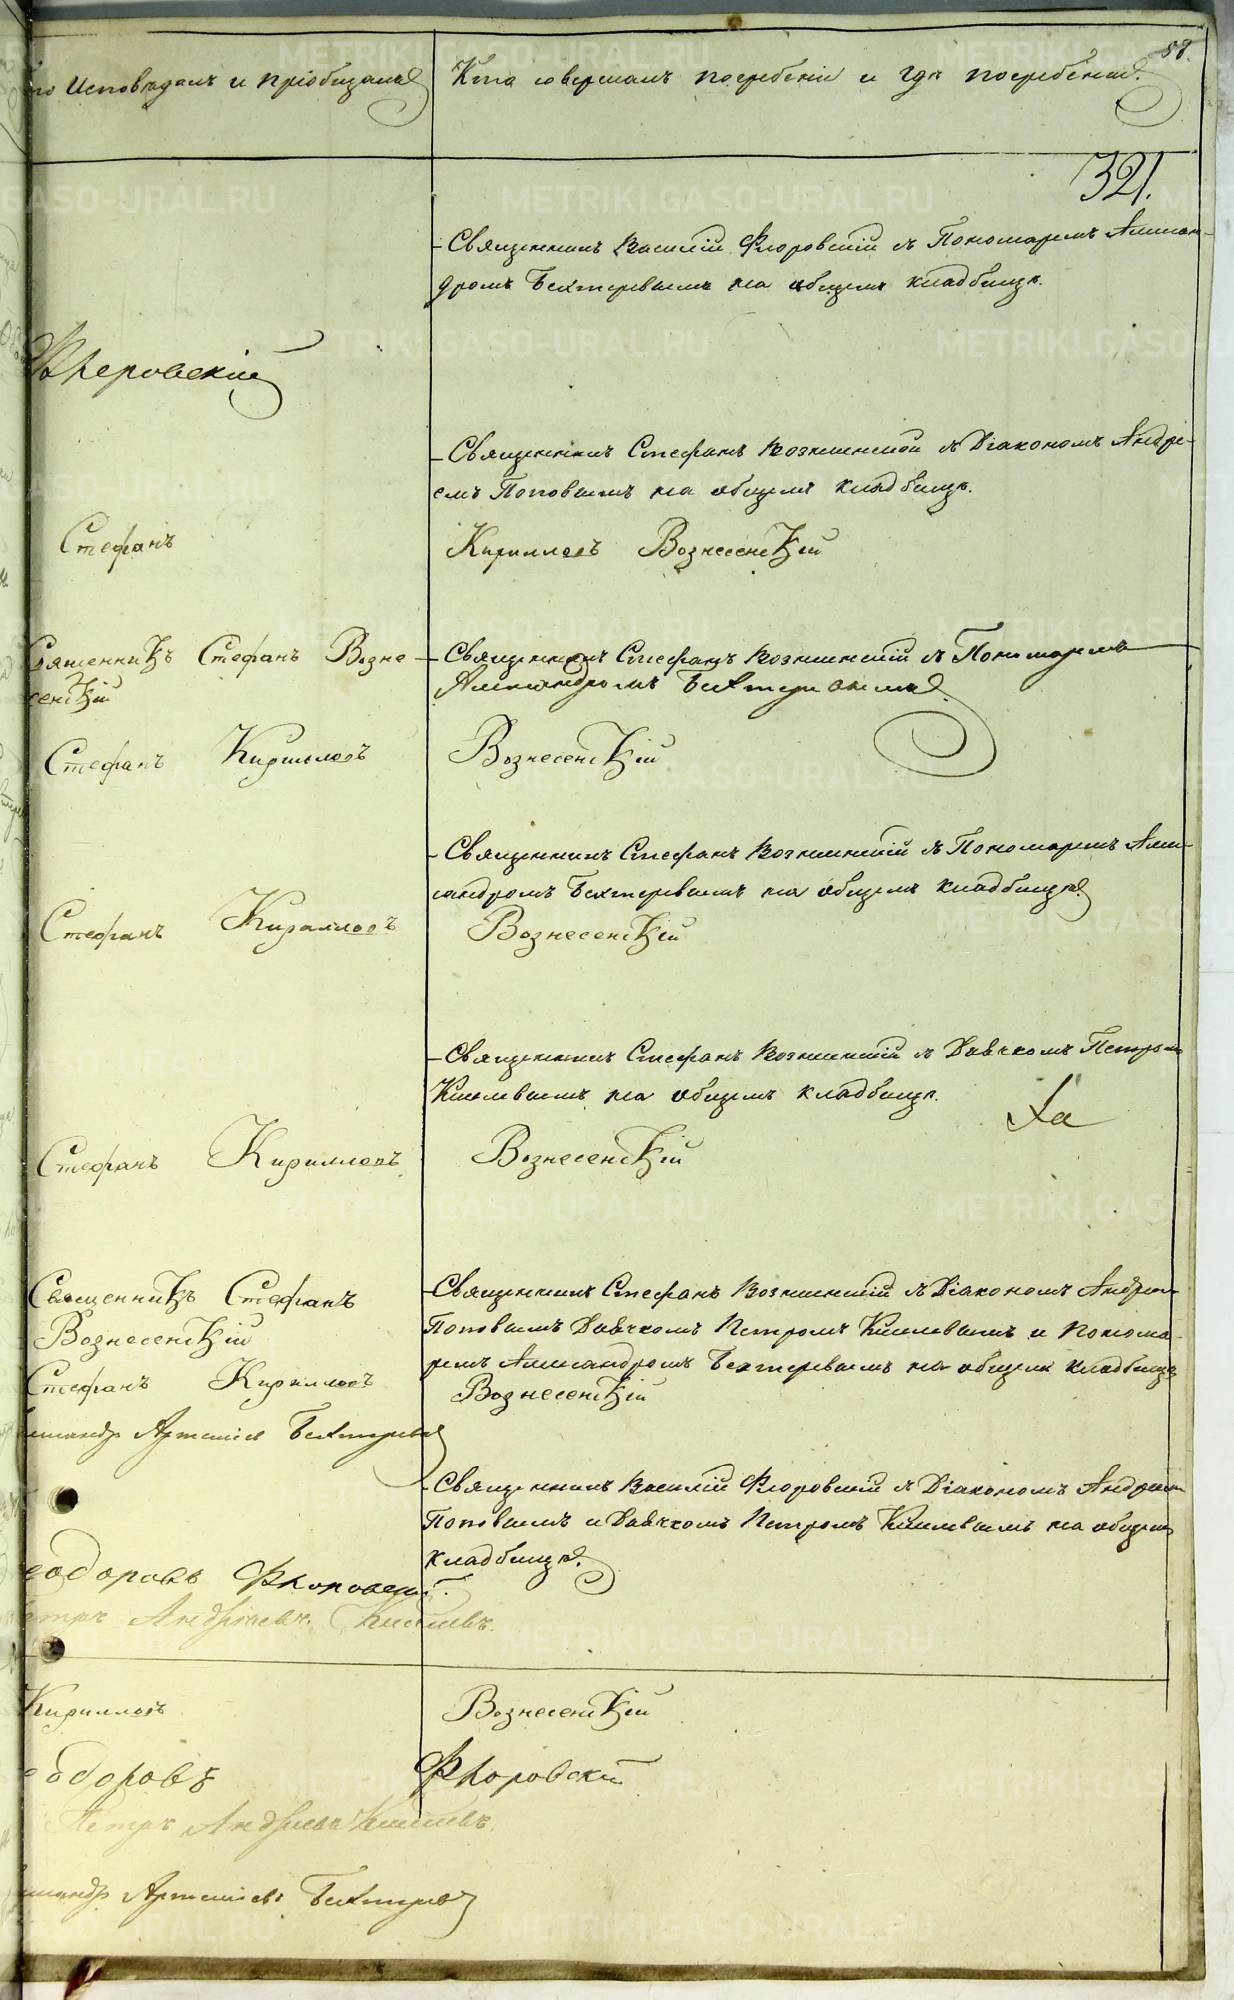 58.
то Исповѣдалъ и пріобщалъ
Кто совершалъ погребеніе и гдѣ погребены.
321.
Священникъ Василій Флоровскій съ Пономаремъ Алексан-
дромъ Бехтеревымъ на общемъ кладбищѣ.
Флоровскій
Священникъ Стефанъ Вознесенской съ Діакономъ Андре-
емъ Поповымъ на общемъ кладбищѣ.
Стефанъ Кирилловъ Вознесенскій
Священникъ Стефанъ Возне-
сенскій
Священникъ Стефанъ Вознесенскій съ Пономаремъ
Александромъ Бехтеревымъ.
Стефанъ Кирилловъ Вознесенскій
Священникъ Стефанъ Вознесенскій съ Пономаремъ Алек-
сандромъ Бехтеревымъ на общемъ кладбищѣ.
Стефанъ Кирилловъ Вознесенскій
Священникъ Стефанъ Вознесенскій съ Дьячкомъ Петромъ
Киселевымъ на общемъ кладбищѣ.
Стефанъ Кирилловъ Вознесенскій
Священникъ Стефанъ
Вознесенскій
Священникъ Стефанъ Вознесенскій съ Діакономъ Андреем
Поповымъ Дьячкомъ Петромъ Киселевымъ и Понома-
ремъ Александромъ Бехтеревымъ на общемъ кладбищѣ
Стефанъ Кирилловъ Вознесенскій
лександръ Артеміевъ Бехтеревъ
Священникъ Василій Флоровскій съ Діакономъ Андреемъ
Поповымъ и Дьячкомъ Петромъ Киселевымъ на общемъ
кладбищѣ.
еодоровъ Флоровскій.
Петръ Андреевъ Киселевъ.
Кирилловъ Вознесенскій
еодоровъ Флоровскій
Петръ Андреевъ Киселевъ.
лександръ Артеміевъ Бехтеревъ
METRIKI.GASO-URAL.RU